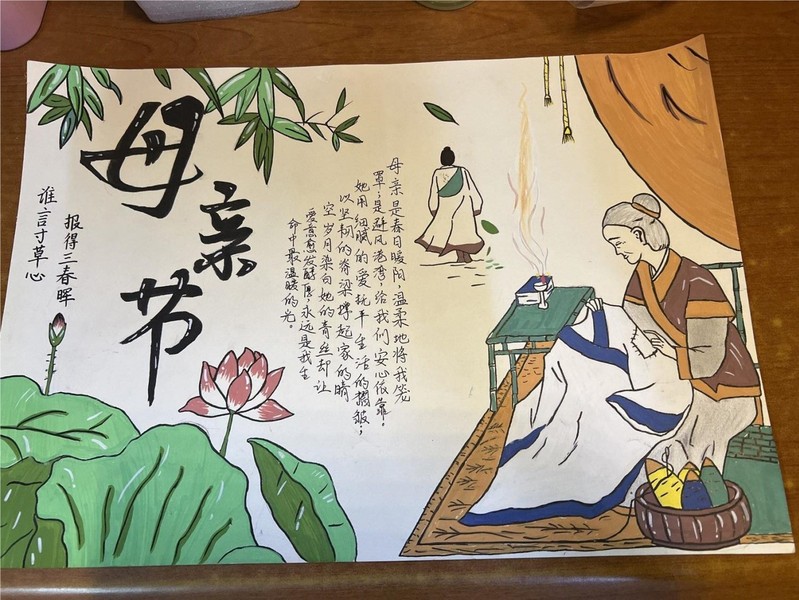 母亲节
谁言寸草心
报得三春晖
母亲是春日暖阳,温柔地将我笼
罩;是避风港湾,给我们安心依靠。
她用细腻的爱抚平生活的褶皱;
以坚韧的脊梁撑起家的晴
空岁月染白她的青丝却让
爱意愈发醇厚,永远是我生
命中最温暖的光。